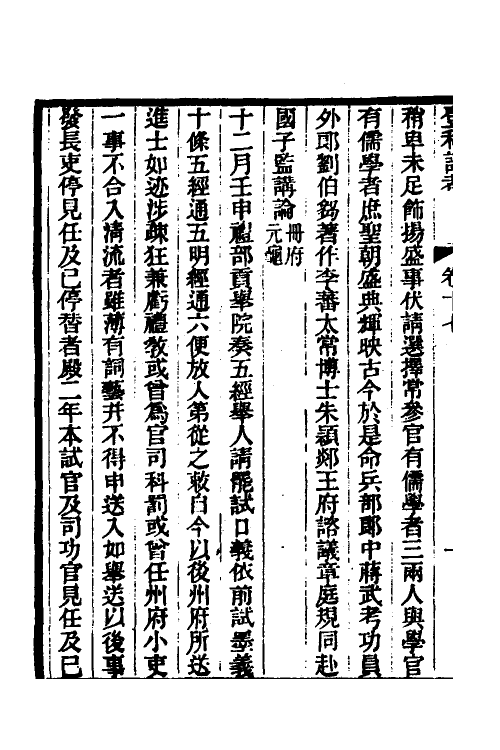 登科記考　卷十七　一
稍卑未足飾揚盛事伏請選擇常參官有儒學者三兩人與學官
有儒學者庶聖朝盛典輝映古今於是命兵部郎中蔣武考功員
外郎劉伯芻著作李蕃太常博士朱潁郯王府諮議章庭規同赴
國子監講論冊府元龜
十二月壬申禮部貢舉院奏五經舉人請罷試口義依前試墨義
十條五經通五明經通六便放人第從之敕自今以後州府所送
進士如迹涉疎狂兼虧禮敎或曾爲官司科罰或曾任州府小吏
一事不合入清流者雖薄有詞藝并不得申送入如舉送以後事
發長吏停見任及已停替者殿二年本試官及司功官見任及已